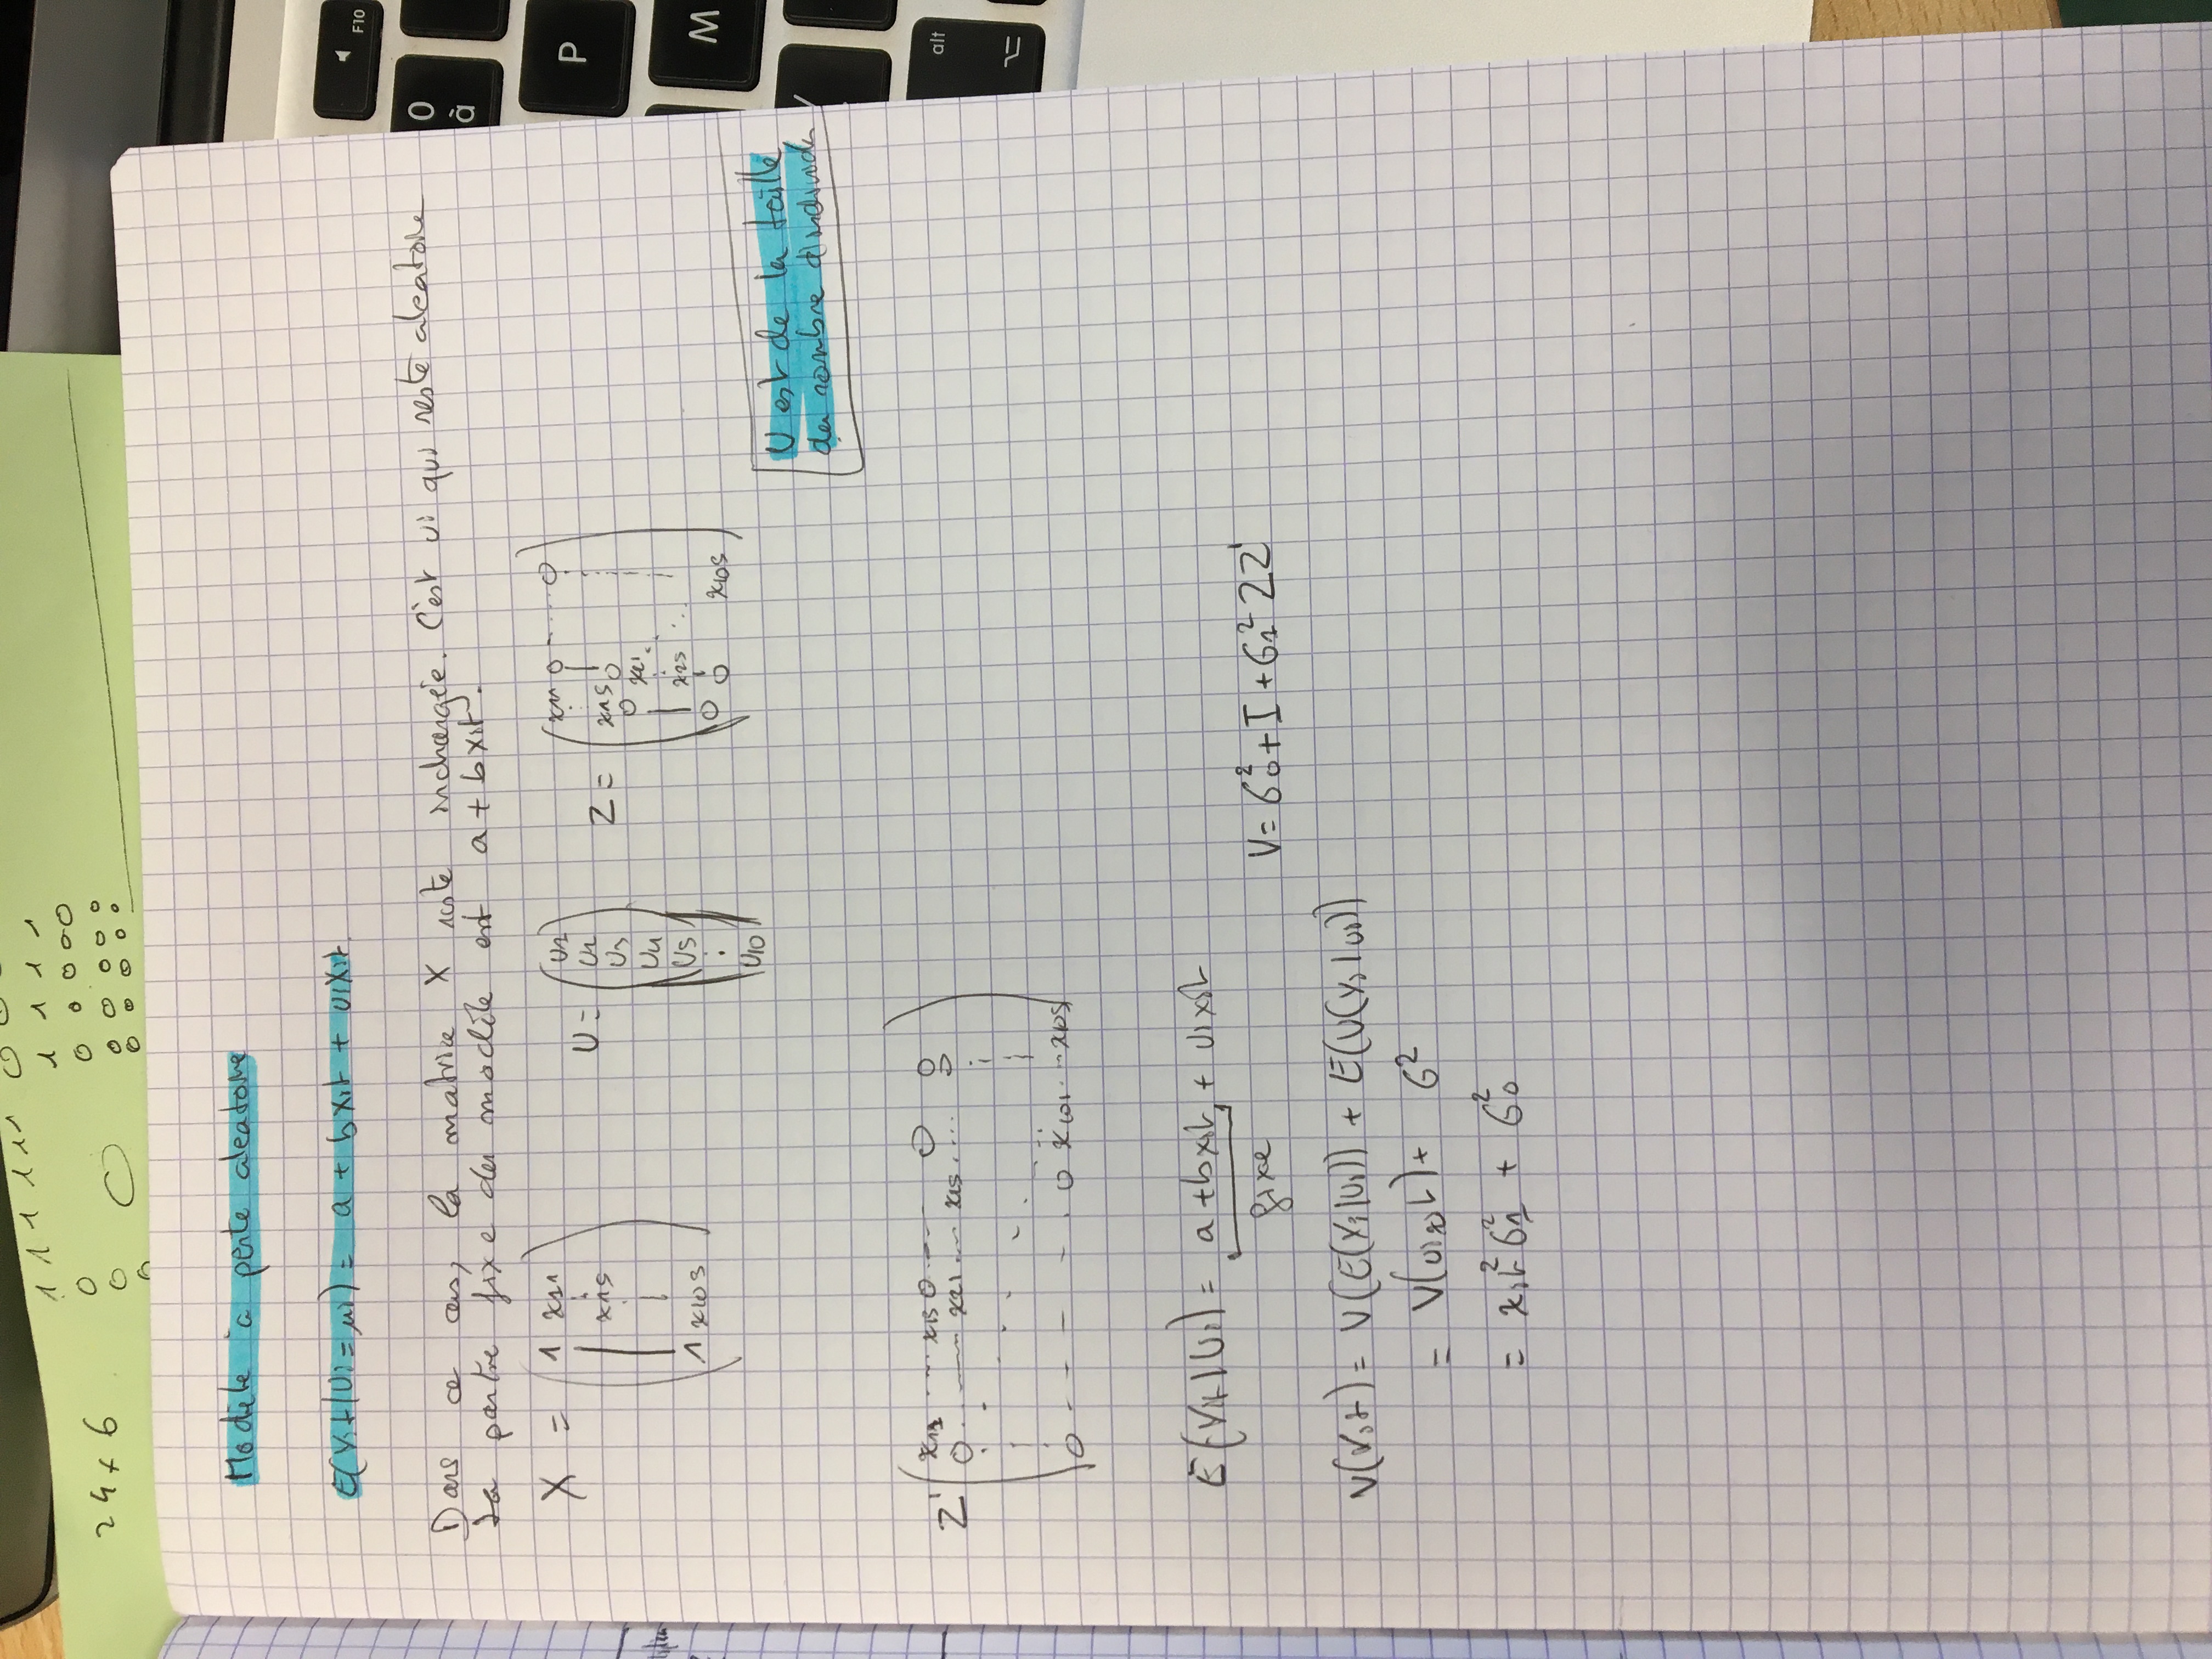 1 1 1 1 1 1 0 0
1 1 1 1
24 x 6
0 0 0 0 0
0 0 0 0 0 0
0 0 0 0 0
Modèle à pente aleatoire
E(Yit|Ui=ui) = a + bxit + uixit.
Dans ce cas, la matrice X reste inchangée. C'est ui qui reste aleatoire
La partie fixe du modèle est a + bxit.
X = ( 1 x11
x15
1 x105 )
U = ( U1
U2
U3
U4
U5
.
U10 )
Z = ( x11 0 ---- 0
x15 0
0 x21
x25
0 0 x105 )
U est de la taille
du nombre d'individu
Z' ( x11 --- x15 0 --- 0 0
0 --- x21 --- x25 .... 0
0 - - - - 0 x101 ... x105 )
E(Yit|Ui) = a + bxit + uixit
fixe
V = σ0² + I + σ1² ZZ'
V(Yit) = V(E(Yi|Ui)) + E(V(Yi|Ui))
= V(uixit) + σ²
= xit² σ1² + σ0²
F10
0
à
P
M
alt
⌥